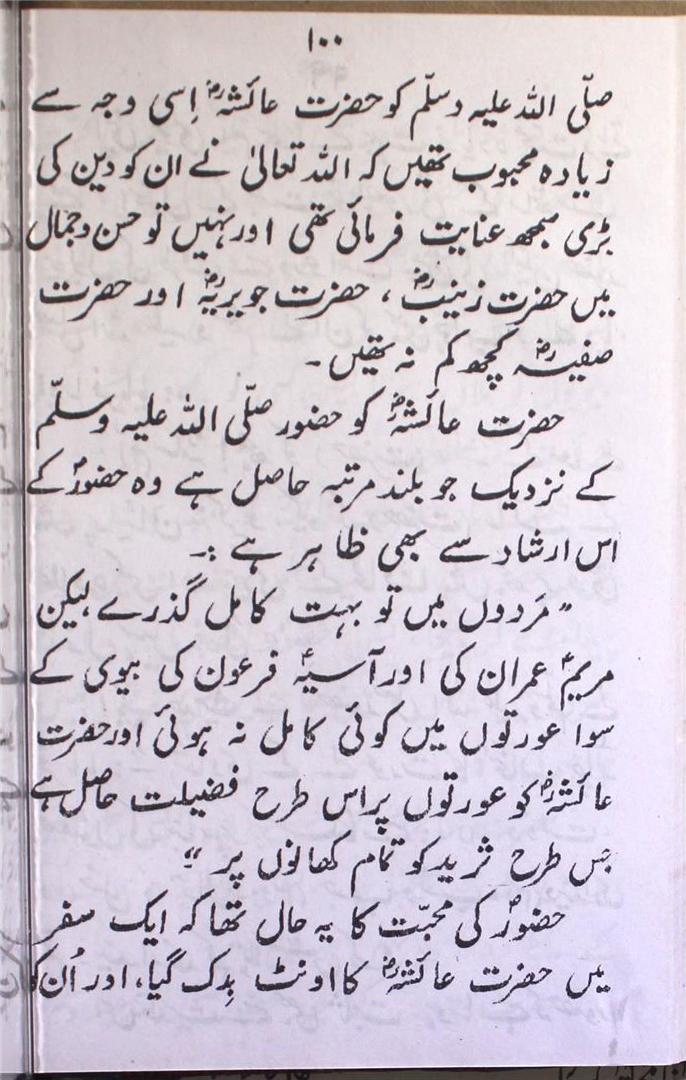 ۱۰۰
صلّی اللہ علیہ وسلّم کو حضرت عائشہؓ اِسی وجہ سے
زیادہ محبوب تھیں کہ اللہ تعالیٰ نے ان کو دین کی
بڑی سمجھ عنایت فرمائی تھی اور نہیں تو حسن و جمال
میں حضرتِ زینبؓ، حضرت جویریہؓ اور حضرت
صفیہؓ کچھ کم نہ تھیں۔
حضرت عائشہؓ کو حضور صلّی اللہ علیہ وسلّم
کے نزدیک جو بلند مرتبہ حاصل ہے وہ حضورؐ کے
اس ارشاد سے بھی ظاہر ہے :۔
”مَردوں میں تو بہت کامل گذرے لیکن
مریمؑ عمران کی اور آسیہؑ فرعون کی بیوی کے
سوا عورتوں میں کوئی کامل نہ ہوئی اور حضرت
عائشہؓ کو عورتوں پر اس طرح فضیلت حاصل ہے
جس طرح ثرید کو تمام کھانوں پر“
حضورؐ کی محبّت کا یہ حال تھا کہ ایک سفر
میں حضرت عائشہؓ کا اونٹ بِدک گیا، اور اُن کو